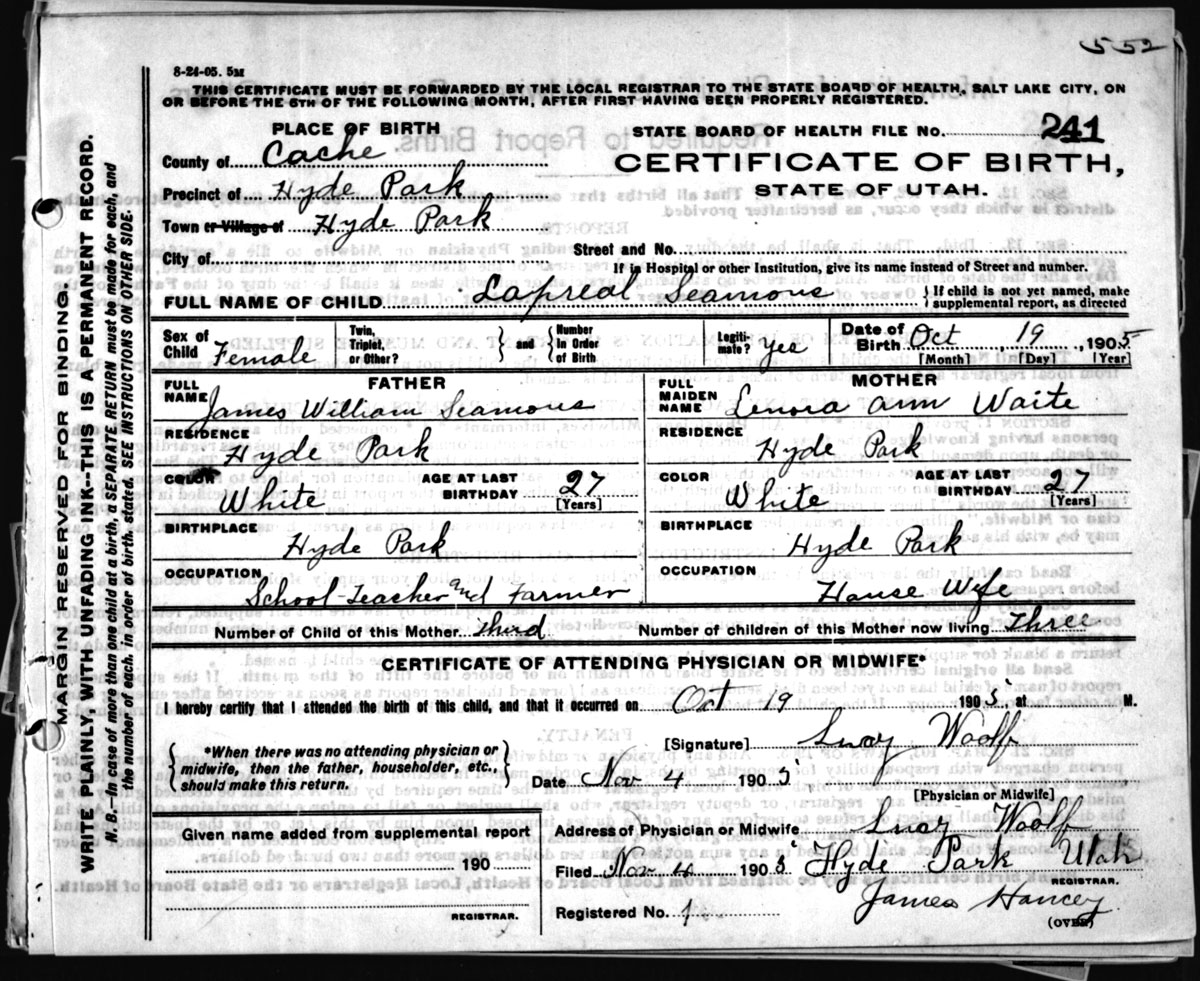 552
8-24-05. 5M
THIS CERTIFICATE MUST BE FORWARDED BY THE LOCAL REGISTRAR TO THE STATE BOARD OF HEALTH, SALT LAKE CITY, ON
OR BEFORE THE 5TH OF THE FOLLOWING MONTH, AFTER FIRST HAVING BEEN PROPERLY REGISTERED.
PLACE OF BIRTH
STATE BOARD OF HEALTH FILE NO. 241
County of Cache
CERTIFICATE OF BIRTH,
Precinct of Hyde Park
STATE OF UTAH.
Town or Village of Hyde Park
City of
Street and No.
If in Hospital or other Institution, give its name instead of Street and number.
FULL NAME OF CHILD Lapreal Seamons
{If child is not yet named, make
supplemental report, as directed
Sex of Child Female
Twin, Triplet, or Other?
} and {
Number in Order of Birth
Legitimate? yes
Date of Birth Oct 19, 1905
[Month] [Day] [Year]
FATHER
FULL NAME James William Seamons
RESIDENCE
Hyde Park
COLOR White
AGE AT LAST BIRTHDAY 27
[Years]
BIRTHPLACE
Hyde Park
OCCUPATION
School-Teacher and Farmer
MOTHER
FULL MAIDEN NAME Lenora Ann Waite
RESIDENCE
Hyde Park
COLOR White
AGE AT LAST BIRTHDAY 27
[Years]
BIRTHPLACE
Hyde Park
OCCUPATION
House Wife
Number of Child of this Mother Third
Number of children of this Mother now living Three
CERTIFICATE OF ATTENDING PHYSICIAN OR MIDWIFE*
I hereby certify that I attended the birth of this child, and that it occurred on Oct 19 1905, at M.
{*When there was no attending physician or
midwife, then the father, householder, etc.,
should make this return.}
[Signature] Lucy Woolf
Date Nov 4 1905
[Physician or Midwife]
Given name added from supplemental report
190
REGISTRAR.
Address of Physician or Midwife Lucy Woolf
Filed Nov 4 1905 Hyde Park Utah
REGISTRAR.
Registered No. 1
James Hancey
(OVER)
MARGIN RESERVED FOR BINDING.
WRITE PLAINLY, WITH UNFADING INK--THIS IS A PERMANENT RECORD.
N. B.--In case of more than one child at a birth, a SEPARATE RETURN must be made for each, and
the number of each, in order of birth, stated. SEE INSTRUCTIONS ON OTHER SIDE.